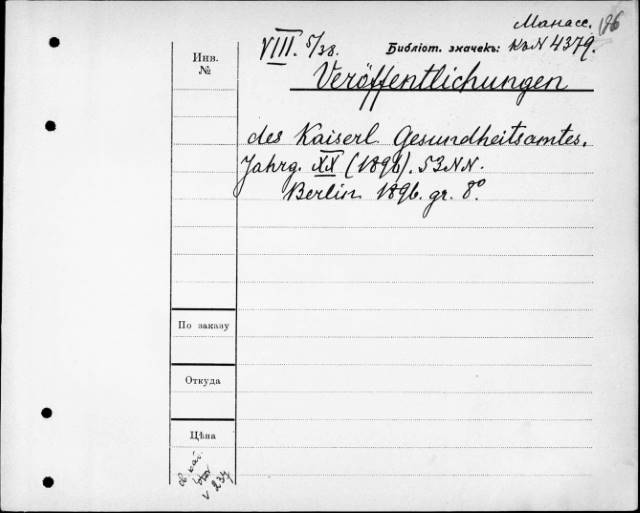 Манасс. 196
VIII. 5/38. Библіот. значекъ: къ N 4379.
Инв.
№
Veröffentlichungen
des Kaiserl. Gesundheitsamtes.
Jahrg. XX (1896). 53 NN.
Berlin 1896. gr. 8°.
По заказу
Откуда
Цѣна
V 237